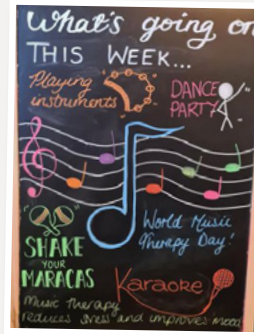 What's going on
THIS WEEK...
Playing
instruments
DANCE
PARTY
World Music
Therapy Day!
SHAKE
YOUR
MARACAS
Karaoke
Music therapy
reduces stress and improves mood